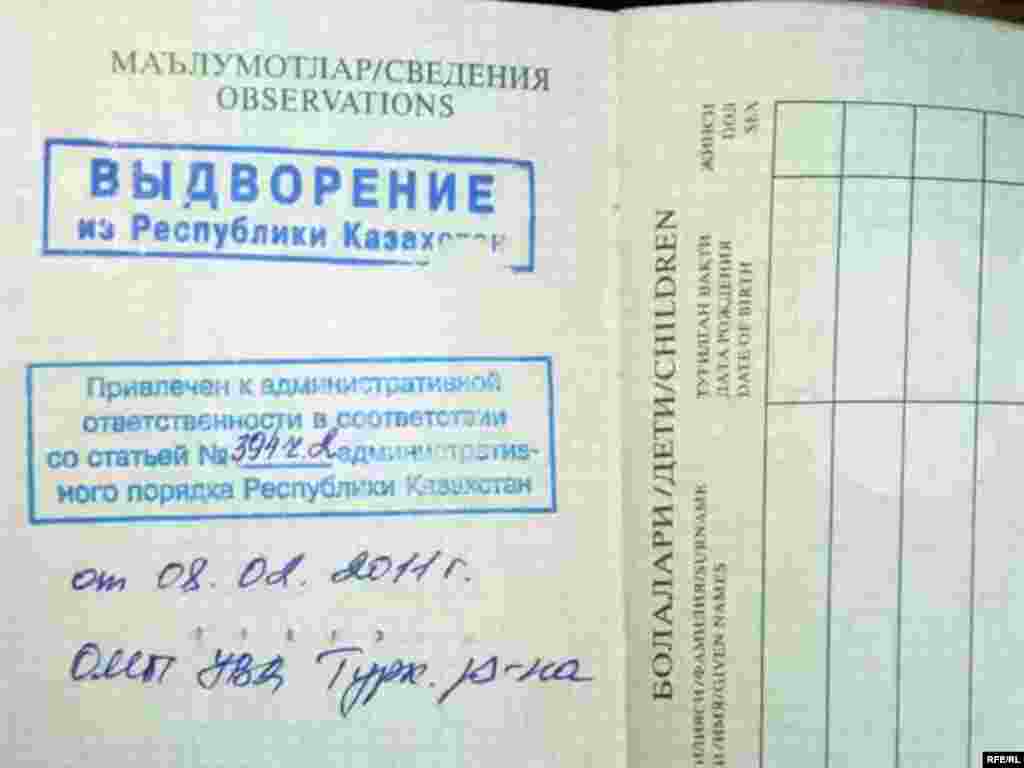 МАЪЛУМОТЛАР/СВЕДЕНИЯ
OBSERVATIONS
ВЫДВОРЕНИЕ
из Республики Казахстан
Привлечен к административной
ответственности в соответствии
со статьей № 394 ч. 2 административ-
ного порядка Республики Казахстан
от 08. 02. 2011 г.
ОМП УВД Турк. р-на
БОЛАЛАРИ/ДЕТИ/CHILDREN
ЖИНСИ
ПОЛ
SEX
ТУҒИЛГАН ВАҚТИ
ДАТА РОЖДЕНИЯ
DATE OF BIRTH
/ФАМИЛИЯ/SURNAME
/ИМЯ/GIVEN NAMES
RFE/RL